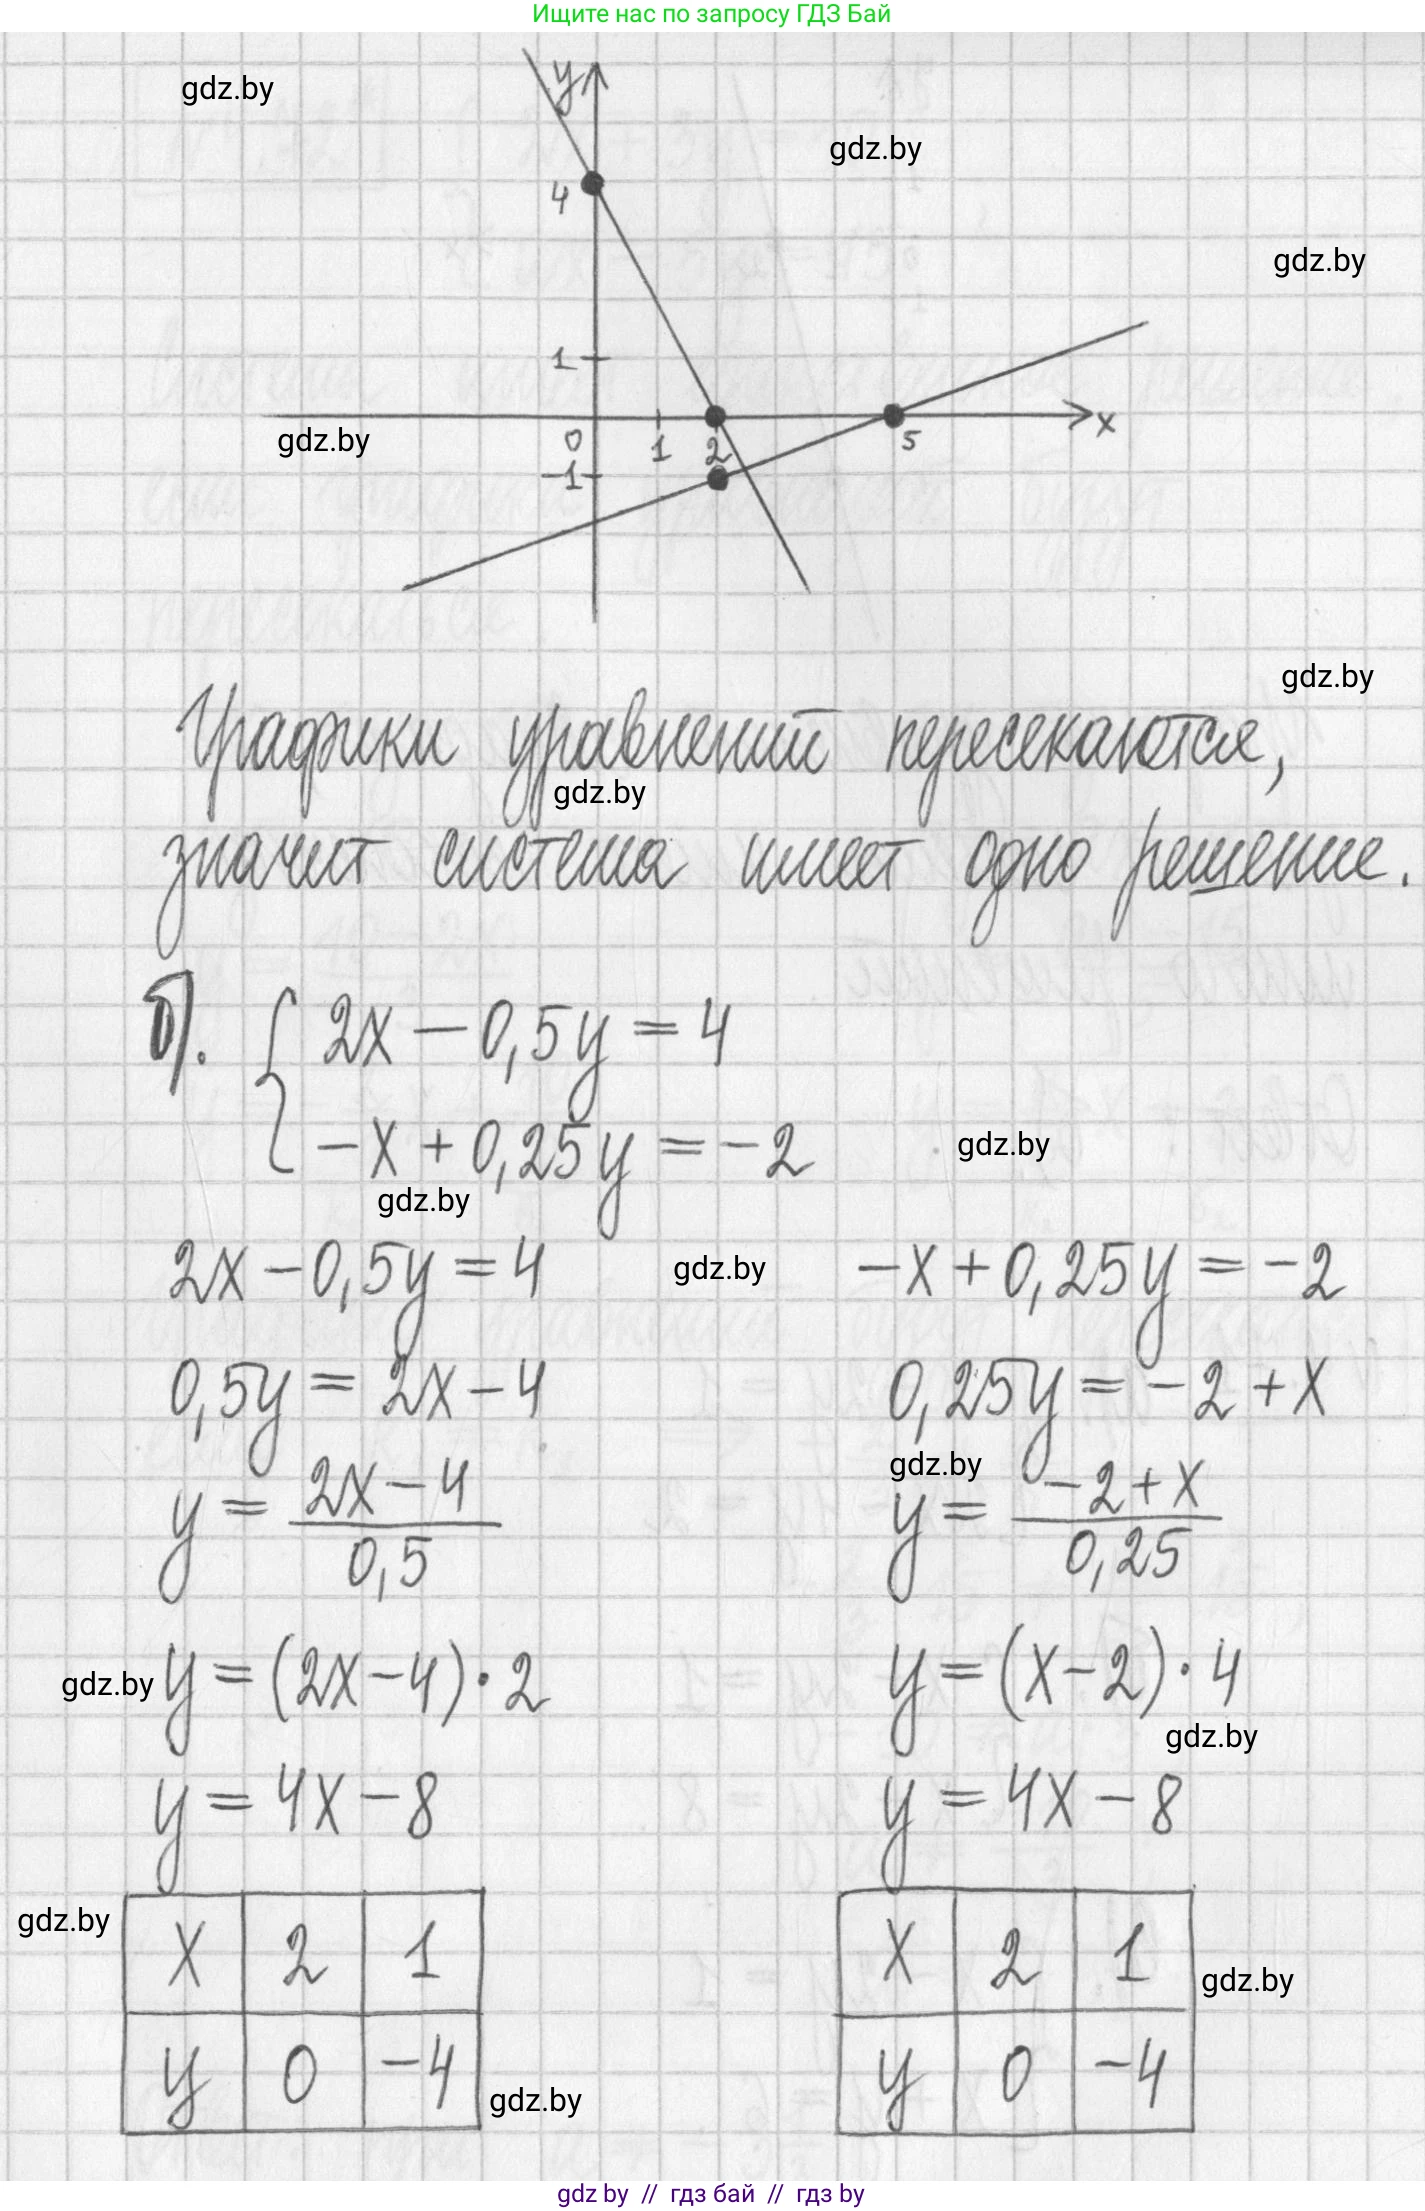 Ищите нас по запросу ГДЗ Бай
y
gdz.by
gdz.by
4
gdz.by
1
gdz.by
0 1 2 5 x
-1
gdz.by
Графики уравнений пересекаются,
gdz.by
значит система имеет одно решение.
б). { 2x - 0,5y = 4
-x + 0,25y = -2
gdz.by
gdz.by
2x - 0,5y = 4 gdz.by -x + 0,25y = -2
0,5y = 2x - 4 0,25y = -2 + x
gdz.by
y = (2x - 4)/0,5 y = (-2 + x)/0,25
gdz.by y = (2x - 4) · 2 y = (x - 2) · 4
gdz.by
y = 4x - 8 y = 4x - 8
gdz.by x 2 1 x 2 1 gdz.by
y 0 -4 gdz.by y 0 -4
gdz by // гдз бай // гдз by